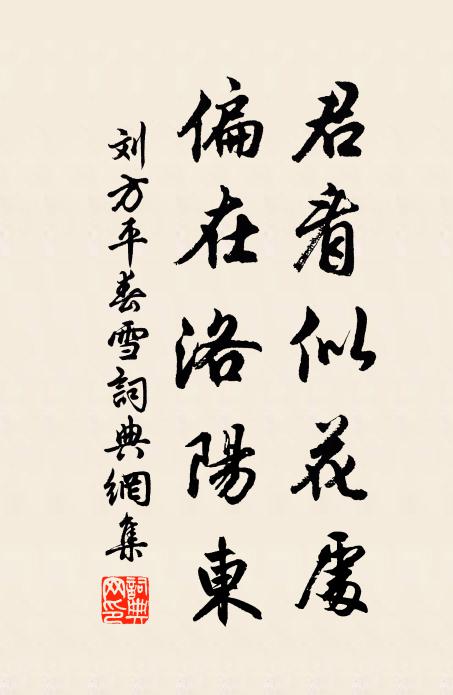 君看似花處
偏在洛陽東
刘方平春雪詞典網集
詞典網印